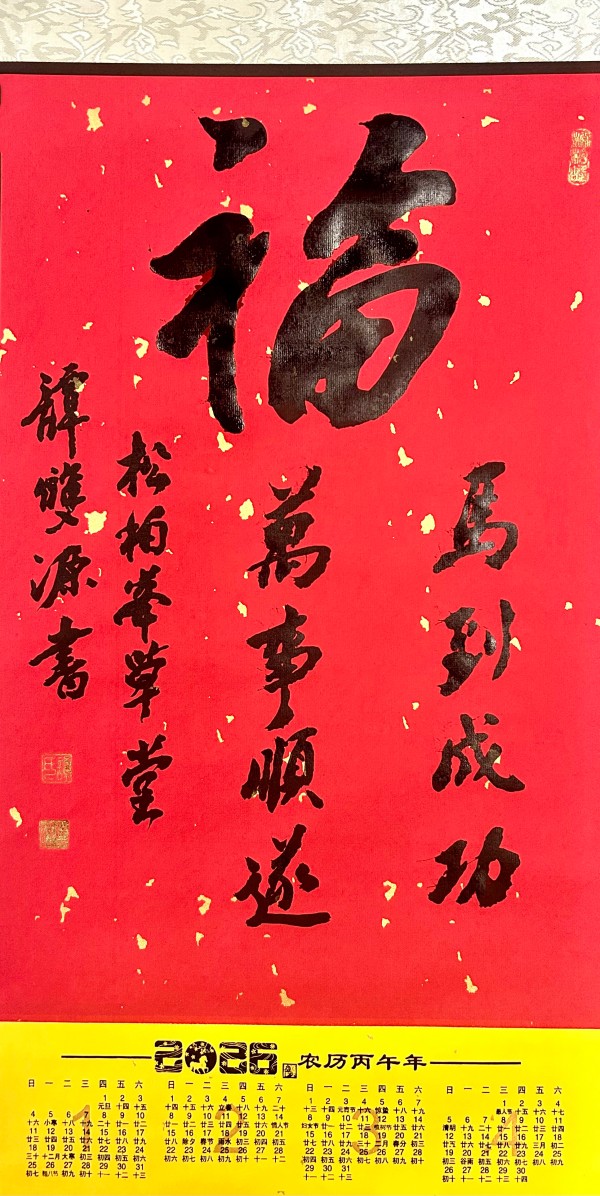 福
馬到成功
萬事順遂
松柏峯草堂
譚雙源書
2026 农历丙午年
1
日 一 二 三 四 五 六
1 2 3
元旦 十四 十五
4 5 6 7 8 9 10
十六 小寒 十八 十九 二十 廿一 廿二
11 12 13 14 15 16 17
廿三 廿四 廿五 廿六 廿七 廿八 廿九
18 19 20 21 22 23 24
三十 十二月 大寒 初三 初四 初五 初六
25 26 27 28 29 30 31
初七 腊八节 初九 初十 十一 十二 十三
2
日 一 二 三 四 五 六
1 2 3 4 5 6 7
十四 十五 十六 立春 十八 十九 二十
8 9 10 11 12 13 14
廿一 廿二 廿三 廿四 廿五 廿六 情人节
15 16 17 18 19 20 21
廿八 除夕 春节 雨水 初三 初四 初五
22 23 24 25 26 27 28
初六 初七 初八 初九 初十 十一 十二
3
日 一 二 三 四 五 六
1 2 3 4 5 6 7
十三 十四 元宵节 十六 惊蛰 十八 十九
8 9 10 11 12 13 14
妇女节 廿一 廿二 廿三 植树节 廿五 廿六
15 16 17 18 19 20 21
廿七 廿八 廿九 三十 二月 春分 初三
22 23 24 25 26 27 28
初四 初五 初六 初七 初八 初九 初十
29 30 31
十一 十二 十三
4
日 一 二 三 四 五 六
1 2 3 4
愚人节 十五 十六 十七
5 6 7 8 9 10 11
清明 十九 二十 廿一 廿二 廿三 廿四
12 13 14 15 16 17 18
廿五 廿六 廿七 廿八 廿九 三月 初二
19 20 21 22 23 24 25
初三 谷雨 初五 初六 初七 初八 初九
26 27 28 29 30
初十 十一 十二 十三 十四